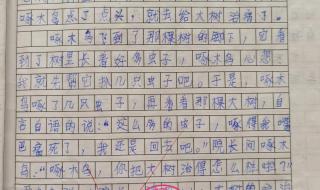 啄木鸟点了点头，就去给大树治病了。
啄木鸟飞到了那棵树的脚下，它看
到了树里长着好条虫子，啄木鸟心想：
我就先帮它抓几只虫子吧。于是，啄木
鸟啄了几只虫子，再看看那棵大树，自
言自语的说：“这么多的虫子，啄得我嘴
巴痛死了，我还是回去吧。”院长问啄木
鸟：“啄木鸟，你把大树治得怎么样啦？”